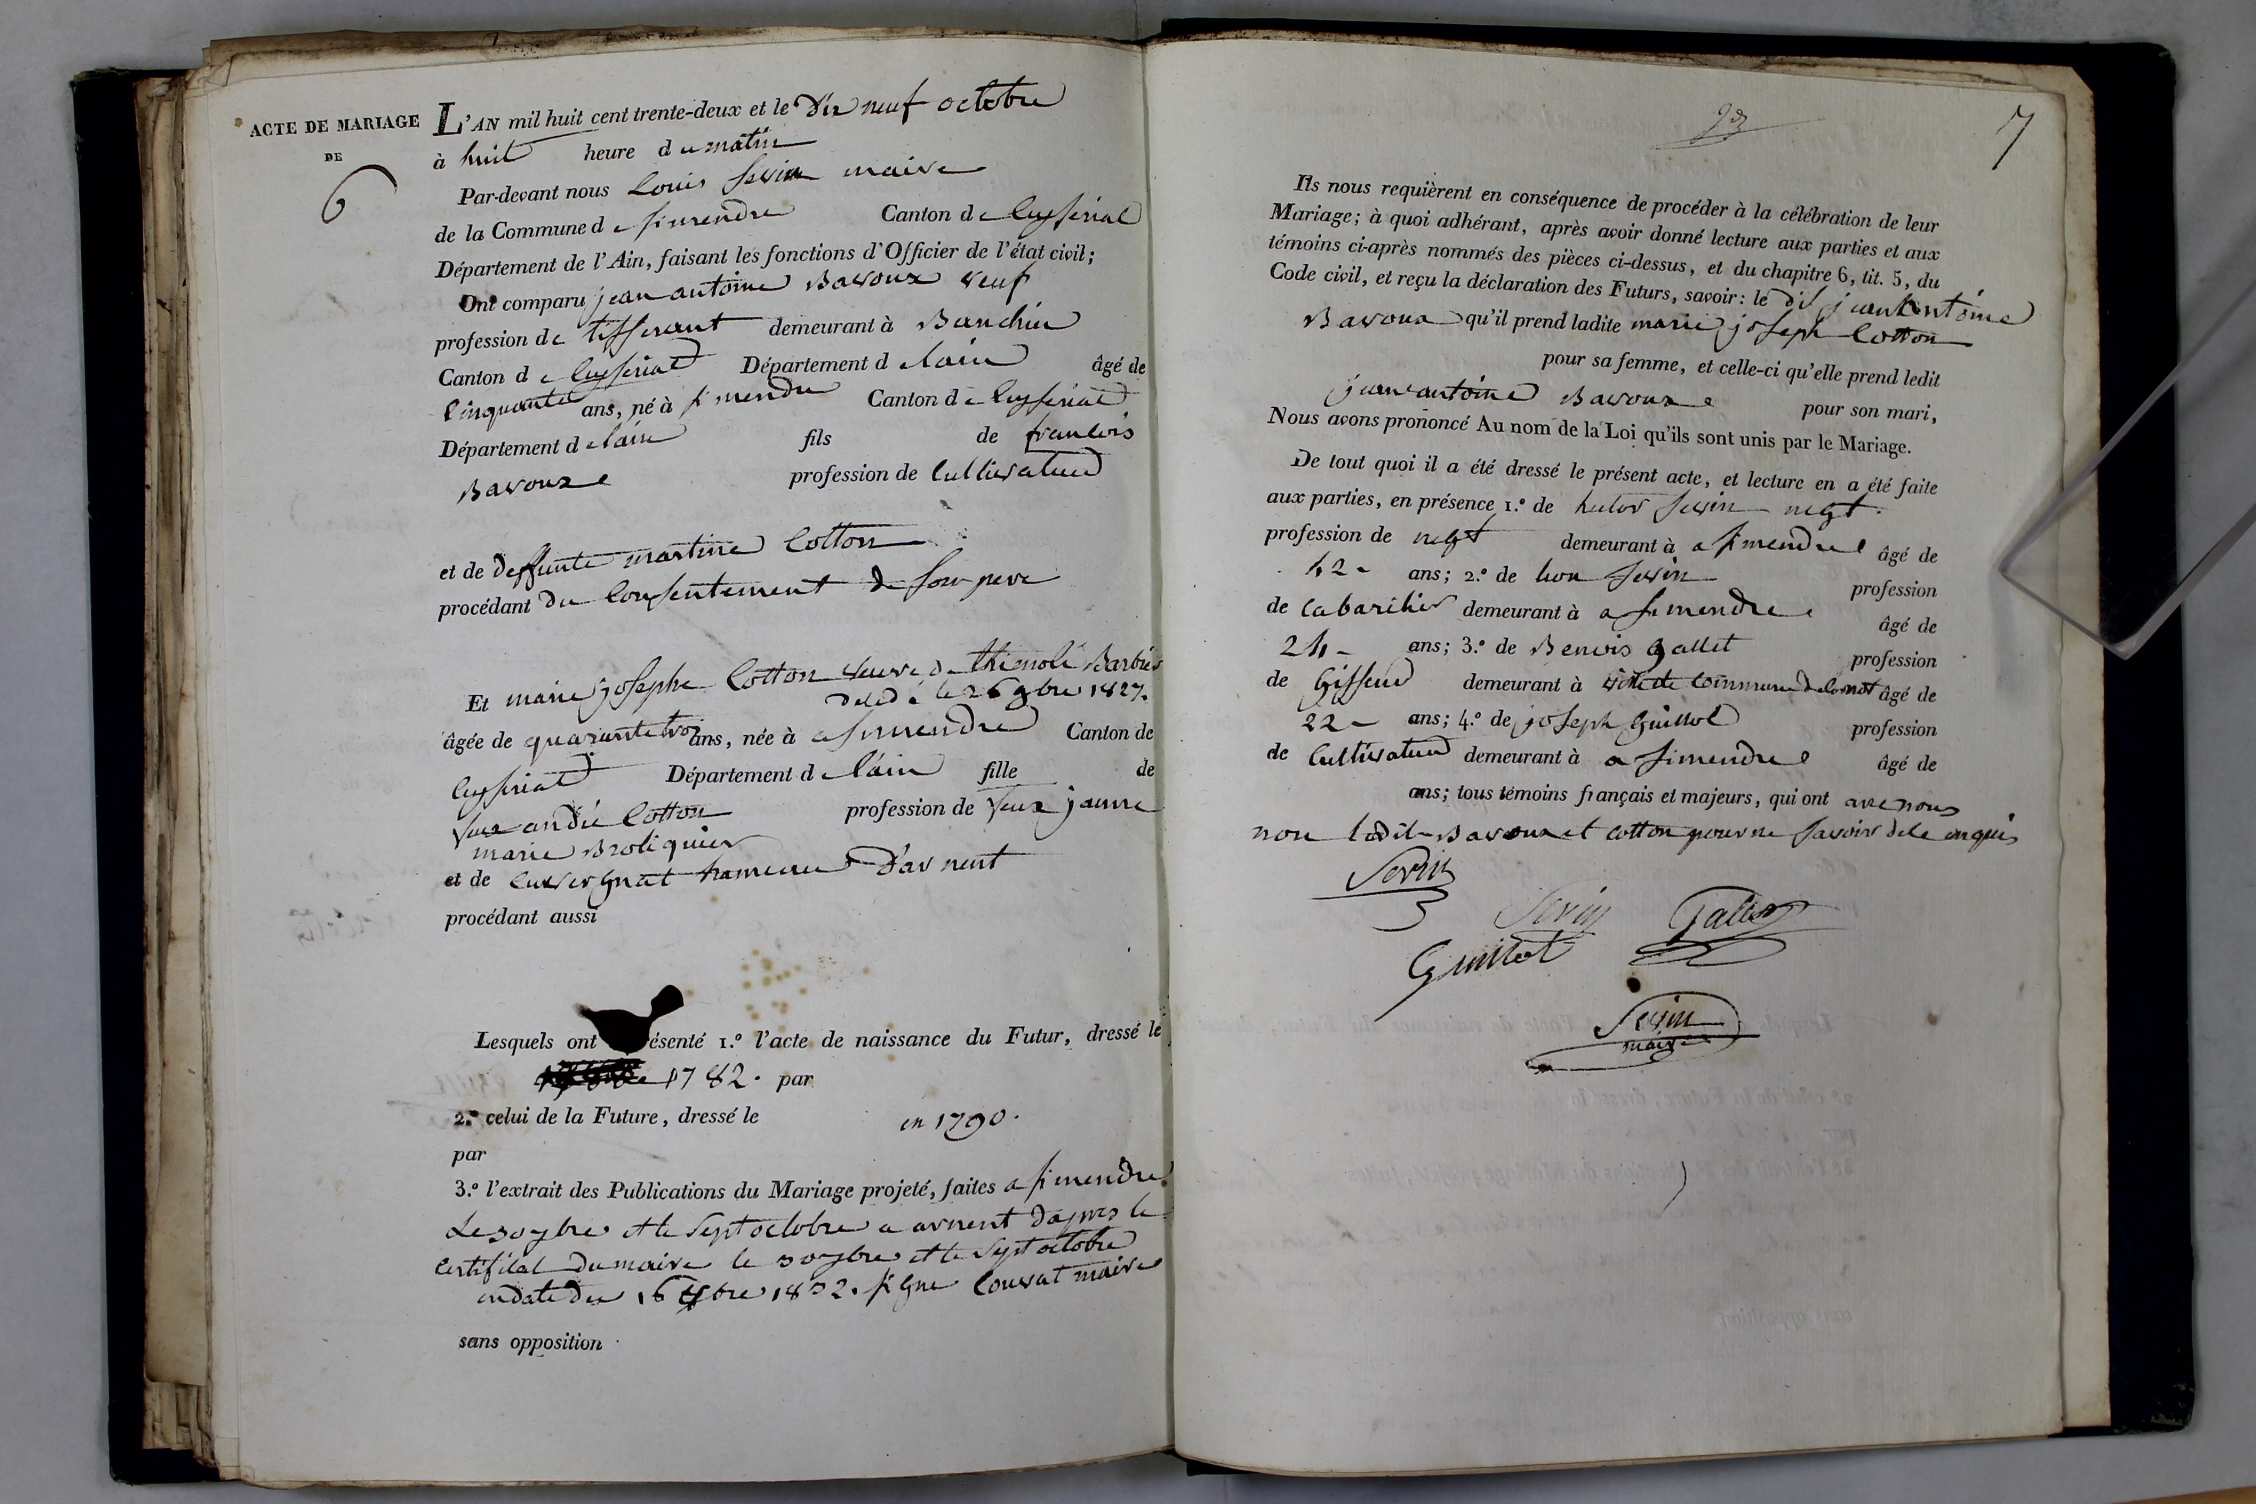 ACTE DE MARIAGE
DE
6
L'AN mil huit cent trente-deux et le dix neuf octobre
à huit heure du matin
Par-devant nous Louis Sevin maire
de la Commune de simendre Canton de Ceyseriat
Département de l'Ain, faisant les fonctions d'Officier de l'état civil;
Ont comparu jean antoine Bavoux veuf
profession de tisserant demeurant à
Canton de Ceyseriat Département de lain âgé de
Cinquante ans, né à simendre Canton de Ceyseriat
Département de lain fils de francois
Bavoux profession de Cultivateur
et de deffunte martine Cotton
procédant du Consentement de son pere
Et marie josephe Cotton veuve de Barbier
décédé le 26 9bre 1827.
âgée de quarante trois ans, née à a simendre Canton de
Ceyseriat Département de lain fille de
feux andré Cotton profession de feux jeanne
marie Broliquier
et de hameau d'arnent
procédant aussi
Lesquels ont ésenté 1.º l'acte de naissance du Futur, dressé le
1782. par
2.º celui de la Future, dressé le en 1790.
par
3.º l'extrait des Publications du Mariage projeté, faites a simendre
Le 30 7bre et le sept octobre a arnent d'apres le
certificat du maire le 30 7bre et le sept octobre
en date du 16 8bre 1832. signe Couvat maire
sans opposition
7
Ils nous requièrent en conséquence de procéder à la célébration de leur
Mariage; à quoi adhérant, après avoir donné lecture aux parties et aux
témoins ci-après nommés des pièces ci-dessus, et du chapitre 6, tit. 5, du
Code civil, et reçu la déclaration des Futurs, savoir: le dit jean Antoine
Bavoux qu'il prend ladite marie joseph Cotton
pour sa femme, et celle-ci qu'elle prend ledit
jean antoine Bavoux pour son mari,
Nous avons prononcé Au nom de la Loi qu'ils sont unis par le Mariage.
De tout quoi il a été dressé le présent acte, et lecture en a été faite
aux parties, en présence 1.º de hector Sevin negt.
profession de negt demeurant à a simendre âgé de
42 ans; 2.º de leon Sevin profession
de Cabaritier demeurant à a simendre âgé de
24 ans; 3.º de Benois Gallet profession
de demeurant à Commune de âgé de
22 ans; 4.º de joseph Guillot profession
de Cultivateur demeurant à a simendre âgé de
ans; tous témoins français et majeurs, qui ont avec nous
non ledit Bavoux et Cotton pour ne savoir de ce enquis
Sevin
Sevin Gallet
Guillot
Sevin
maire